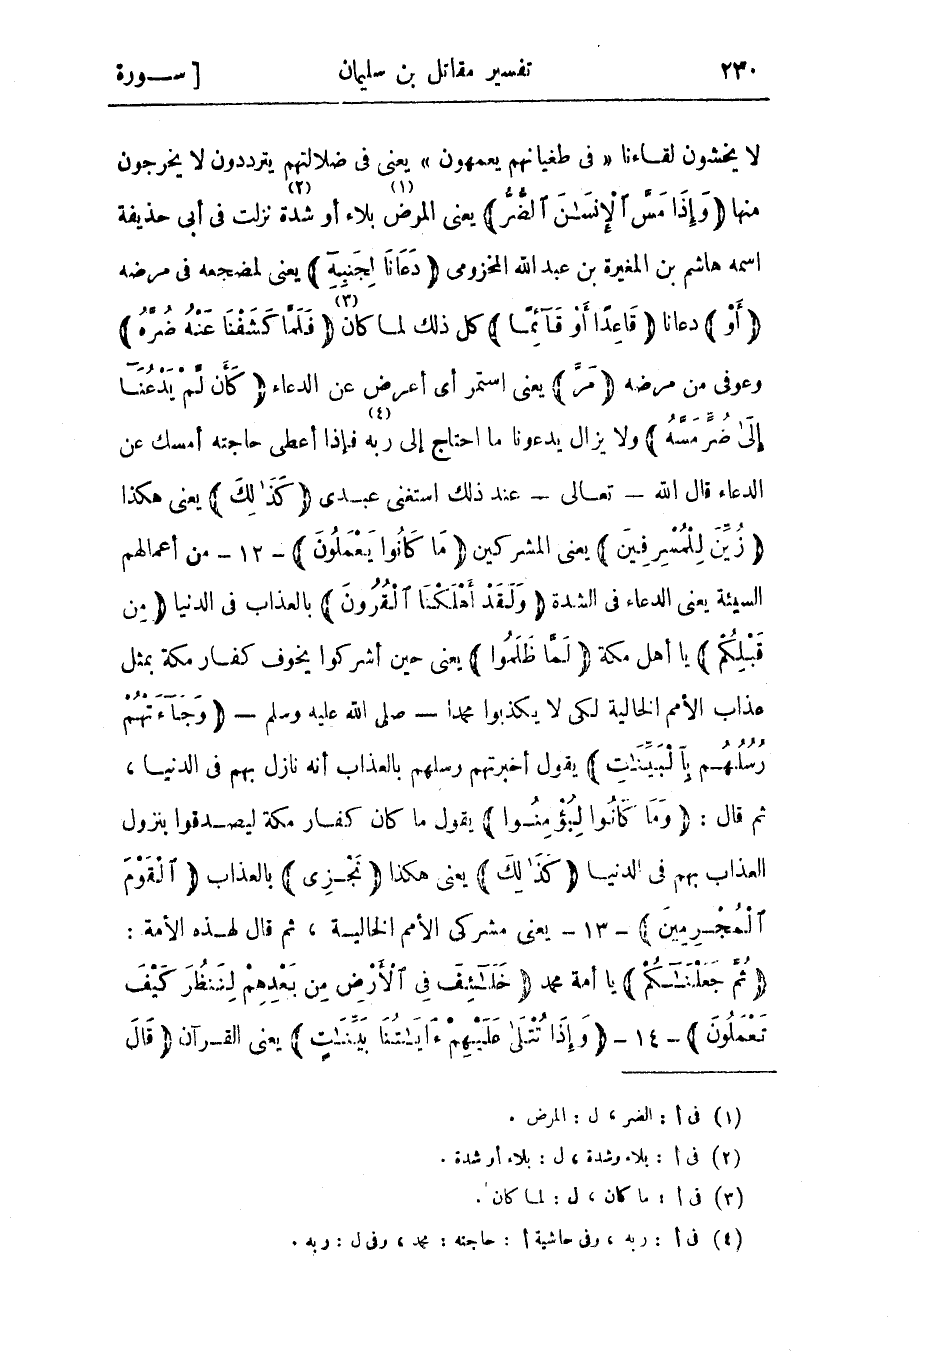 ٢٣٠ تفسير مقاتل بن سليمان [ ســورة
لا يخشون لقـاءنا « فى طغيانهم يعمهون » يعنى فى ضلالتهم يترددون لا يخرجون
منها ﴿ وَإِذَا مَسَّ ٱلْإِنسَـٰنَ ٱلضُّرُّ ﴾ يعنى المرض (١) بلاء أو شدة (٢) نزلت فى أبى حذيفة
اسمه هاشم بن المغيرة بن عبد الله المخزومى ﴿ دَعَانَا لِجَنبِهِۦٓ ﴾ يعنى لمضجعه فى مرضه
﴿ أَوْ ﴾ دعانا ﴿ قَاعِدًا أَوْ قَآئِمًـا ﴾ كل ذلك لمـا كان (٣) ﴿ فَلَمَّا كَشَفْنَا عَنْهُ ضُرَّهُۥ ﴾
وعوفى من مرضه ﴿ مَرَّ ﴾ يعنى استمر أى أعرض عن الدعاء ﴿ كَأَن لَّمْ يَدْعُنَـآ
إِلَىٰ ضُرٍّ مَّسَّهُۥ ﴾ ولا يزال يدعونا ما احتاج إلى ربه (٤) فإذا أعطى حاجته أمسك عن
الدعاء قال الله — تعـالى — عند ذلك استغنى عبـدى ﴿ كَذَٰلِكَ ﴾ يعنى هكذا
﴿ زُيِّنَ لِلْمُسْرِفِينَ ﴾ يعنى المشركين ﴿ مَا كَانُوا يَعْمَلُونَ ﴾ – ١٢ – من أعمالهم
السيئة يعنى الدعاء فى الشدة ﴿ وَلَقَدْ أَهْلَكْنَا ٱلْقُرُونَ ﴾ بالعذاب فى الدنيا ﴿ مِن
قَبْلِكُمْ ﴾ يا أهل مكة ﴿ لَمَّا ظَلَمُوا ﴾ يعنى حين أشركوا يخوف كفـار مكة بمثل
عذاب الأمم الخالية لكى لا يكذبوا محمدا — صلى الله عليه وسلم — ﴿ وَجَآءَتْهُمْ
رُسُلُهُـم بِٱلْبَيِّنَـٰتِ ﴾ يقول أخبرتهم رسلهم بالعذاب أنه نازل بهم فى الدنيـا ،
ثم قال : ﴿ وَمَا كَانُوا لِيُؤْمِنُـوا ﴾ يقول ما كان كفـار مكة ليصـدقوا بنزول
العذاب بهم فى الدنيـا ﴿ كَذَٰلِكَ ﴾ يعنى هكذا ﴿ نَجْـزِى ﴾ بالعذاب ﴿ ٱلْقَوْمَ
ٱلْمُجْـرِمِينَ ﴾ – ١٣ – يعنى مشركى الأمم الخاليـة ، ثم قال لهـذه الأمة :
﴿ ثُمَّ جَعَلْنَـٰكُمْ ﴾ يا أمة محمد ﴿ خَلَـٰٓئِفَ فِى ٱلْأَرْضِ مِن بَعْدِهِمْ لِنَنظُرَ كَيْفَ
تَعْمَلُونَ ﴾ – ١٤ – ﴿ وَإِذَا تُتْلَىٰ عَلَيْهِمْ ءَايَـٰتُنَا بَيِّنَـٰتٍ ﴾ يعنى القـرآن ﴿ قَالَ
(١) فى أ : الضر ، ل : المرض .
(٢) فى أ : بلاء وشدة ، ل : بلاء أو شدة .
(٣) فى أ : ما كان ، ل : لمـا كان .
(٤) فى أ : ربه ، وفى حاشية أ : حاجته : محمد ، وفى ل : ربه .